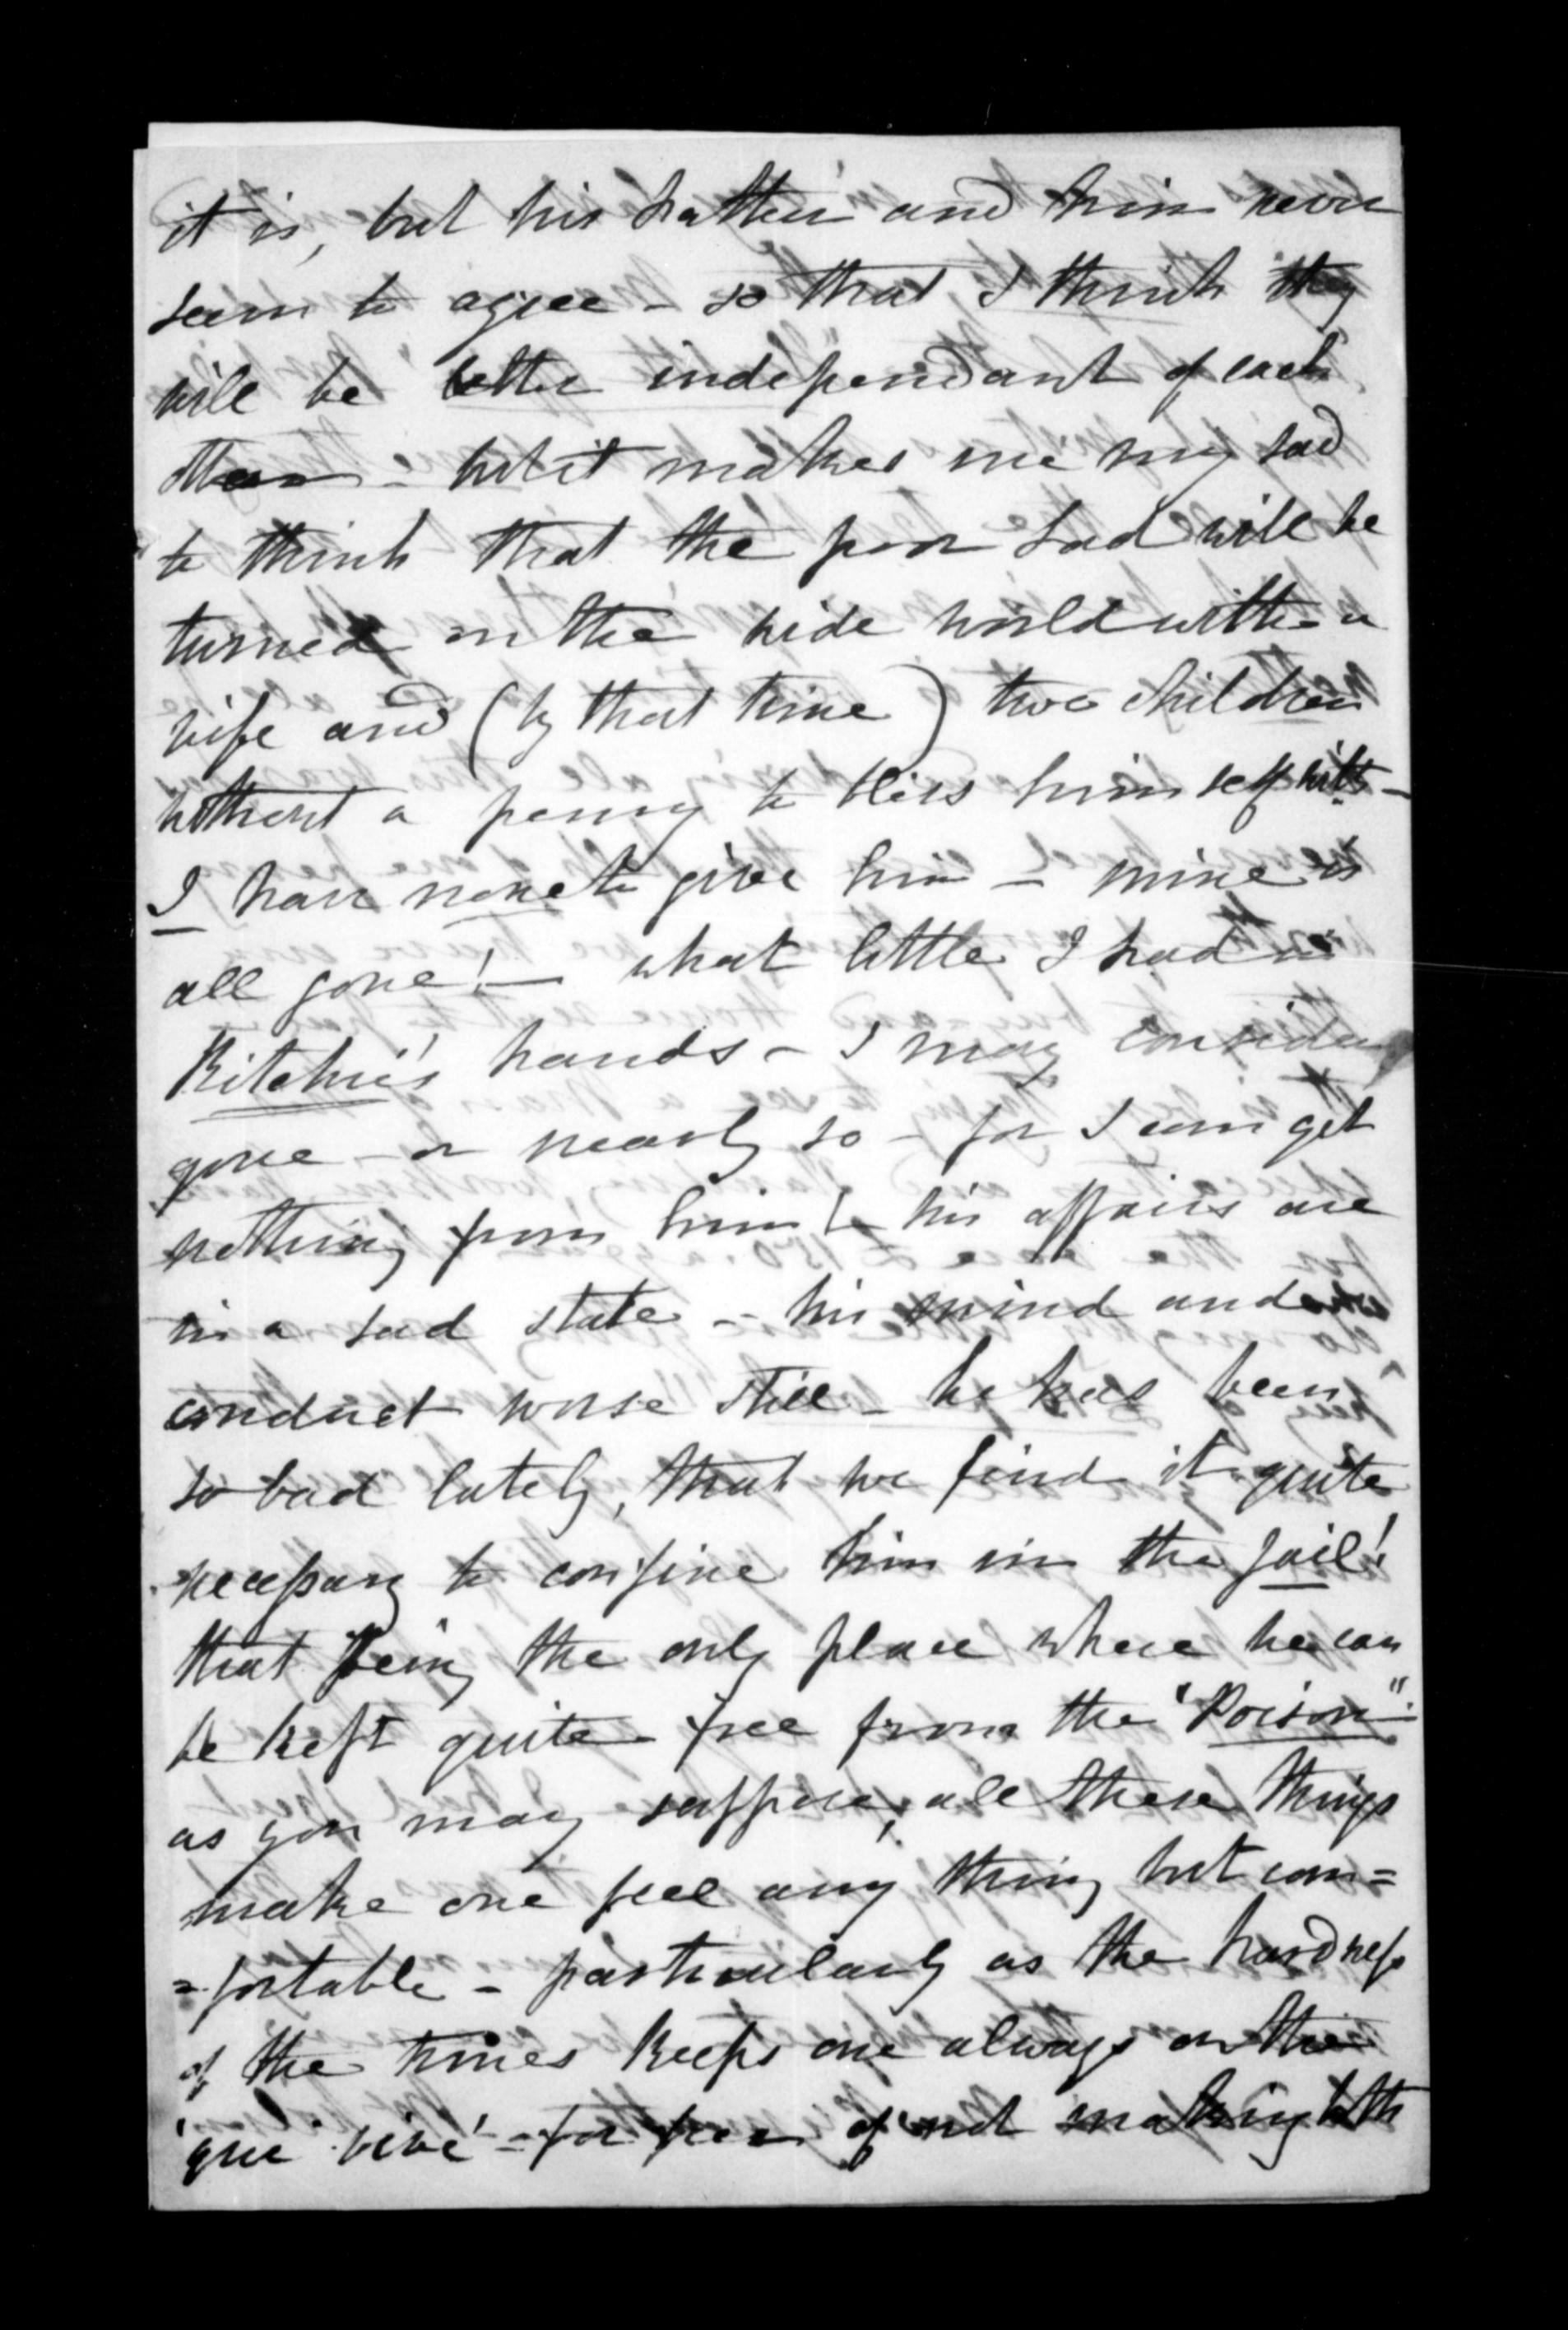 it is, but his Father and him never
seem to agree - so that I think they
will be better independant of each
other - but it makes me very sad
to think that the poor lad will be
turned on the wide world with a
wife and (by that time) two children
without a penny to bless himself with -
I have none to give him - mine is
all gone! - what little I had in
Ritchie's hands - I may consider
gone - or nearly so - for I can get
nothing from him! - his affairs are
in a sad state - his mind and
conduct worse still - he has been
so bad lately, that we find it quite
necessary to confine him in the jail!
that being the only place where he can
be kept quite free from the "Poison".
as you may suppose, all these things
make one feel any thing but com=
=fortable - particularly as the hardness
of the times keeps one always on the
'qui vive' - for fear of not making both